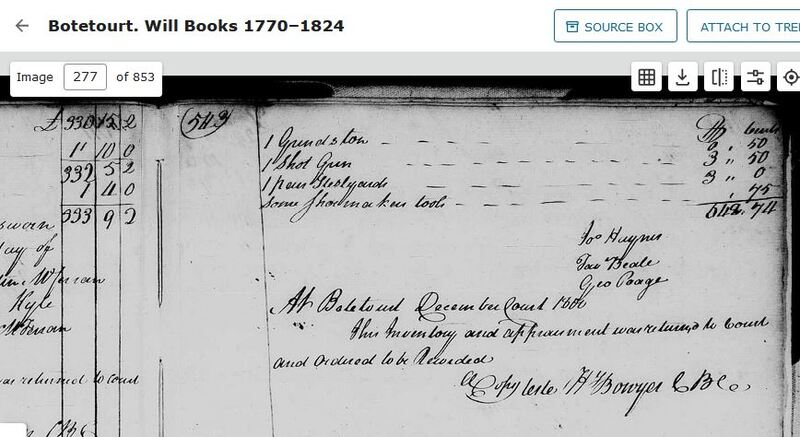 Botetourt. Will Books 1770–1824
SOURCE BOX
ATTACH TO TRE
Image 277 of 853
£ 330 15 2
1 10 0
332 5 2
1 4 0
333 9 2
sworn
day of
Hyle
was returned to Court
543
Cents
1 Grindston 0 " 50
1 Shot Gun 3 " 50
1 pair Steelyards 3 " 0
Some Shoemakers tools " 75
542. 74
Jos Haynes
Tav Beale
Geo Poage
At Botetourt December Court 1800
This Inventory and appraisment was returned to Court
and ordered to be Recorded
a Copy teste H Bowyer C B C